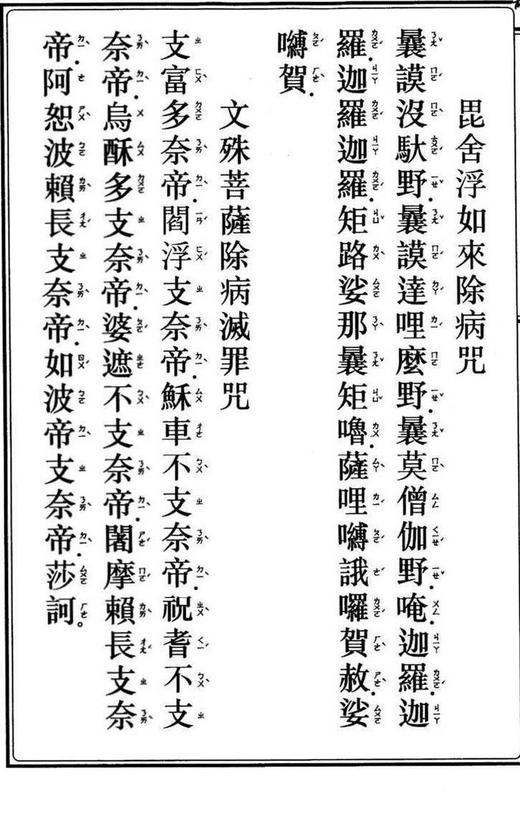 毘舍浮如來除病咒
曩謨沒馱野.曩謨達哩麼野.曩莫僧伽野.唵.迦羅.迦
羅.迦羅迦羅.矩路娑那曩矩嚕.薩哩嚩誐囉賀.赦.娑
嚩賀.
文殊菩薩除病滅罪咒
支富多奈帝.閻浮支奈帝.穌車不支奈帝.祝耆不支
奈帝.烏酥多支奈帝.婆遮不支奈帝.闍摩賴長支奈
帝.阿恕波賴長支奈帝.如波帝支奈帝.莎訶。